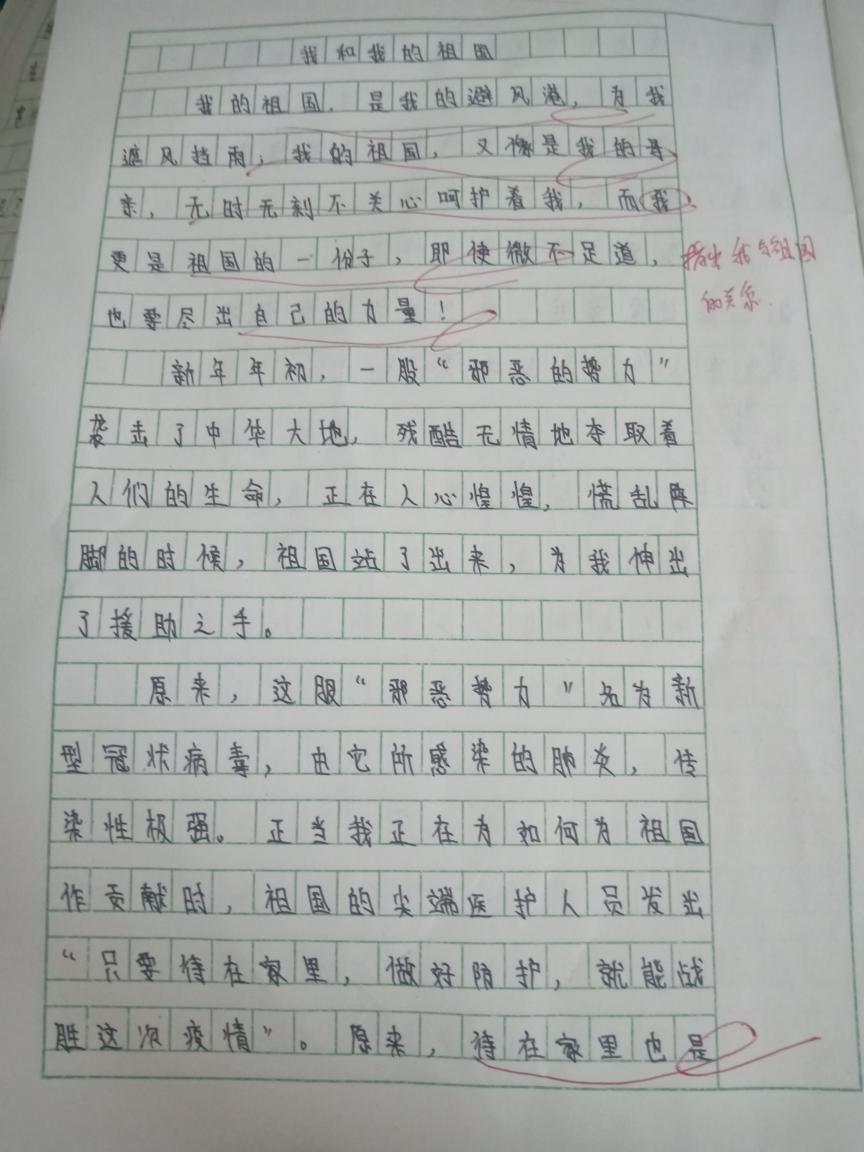 我和我的祖国
我的祖国，是我的避风港，为我
遮风挡雨；我的祖国，又像是我的母
亲，无时无刻不关心呵护着我，而我
更是祖国的一份子，即使微不足道，
也要尽出自己的力量！
指出我与祖国
的关系.
新年年初，一股“邪恶的势力”
袭击了中华大地，残酷无情地夺取着
人们的生命，正在人心惶惶，慌乱阵
脚的时候，祖国站了出来，为我伸出
了援助之手。
原来，这股“邪恶势力”名为新
型冠状病毒，由它所感染的肺炎，传
染性极强。正当我正在为如何为祖国
作贡献时，祖国的尖端医护人员发出
“只要待在家里，做好防护，就能战
胜这次疫情”。原来，待在家里也是